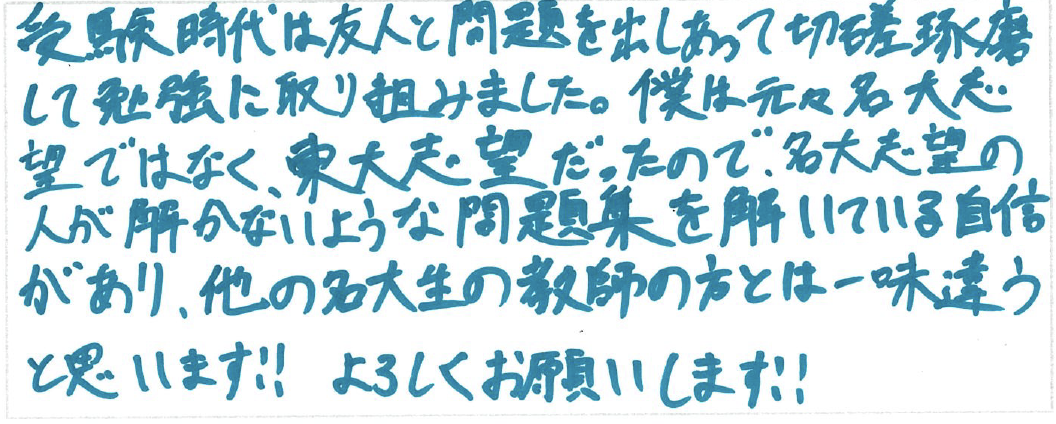 受験時代は友人と問題を出しあって切磋琢磨
して勉強に取り組みました。僕は元々名大志
望ではなく、東大志望だったので、名大志望の
人が解かないような問題集を解いている自信
があり、他の名大生の教師の方とは一味違う
と思います!! よろしくお願いします!!